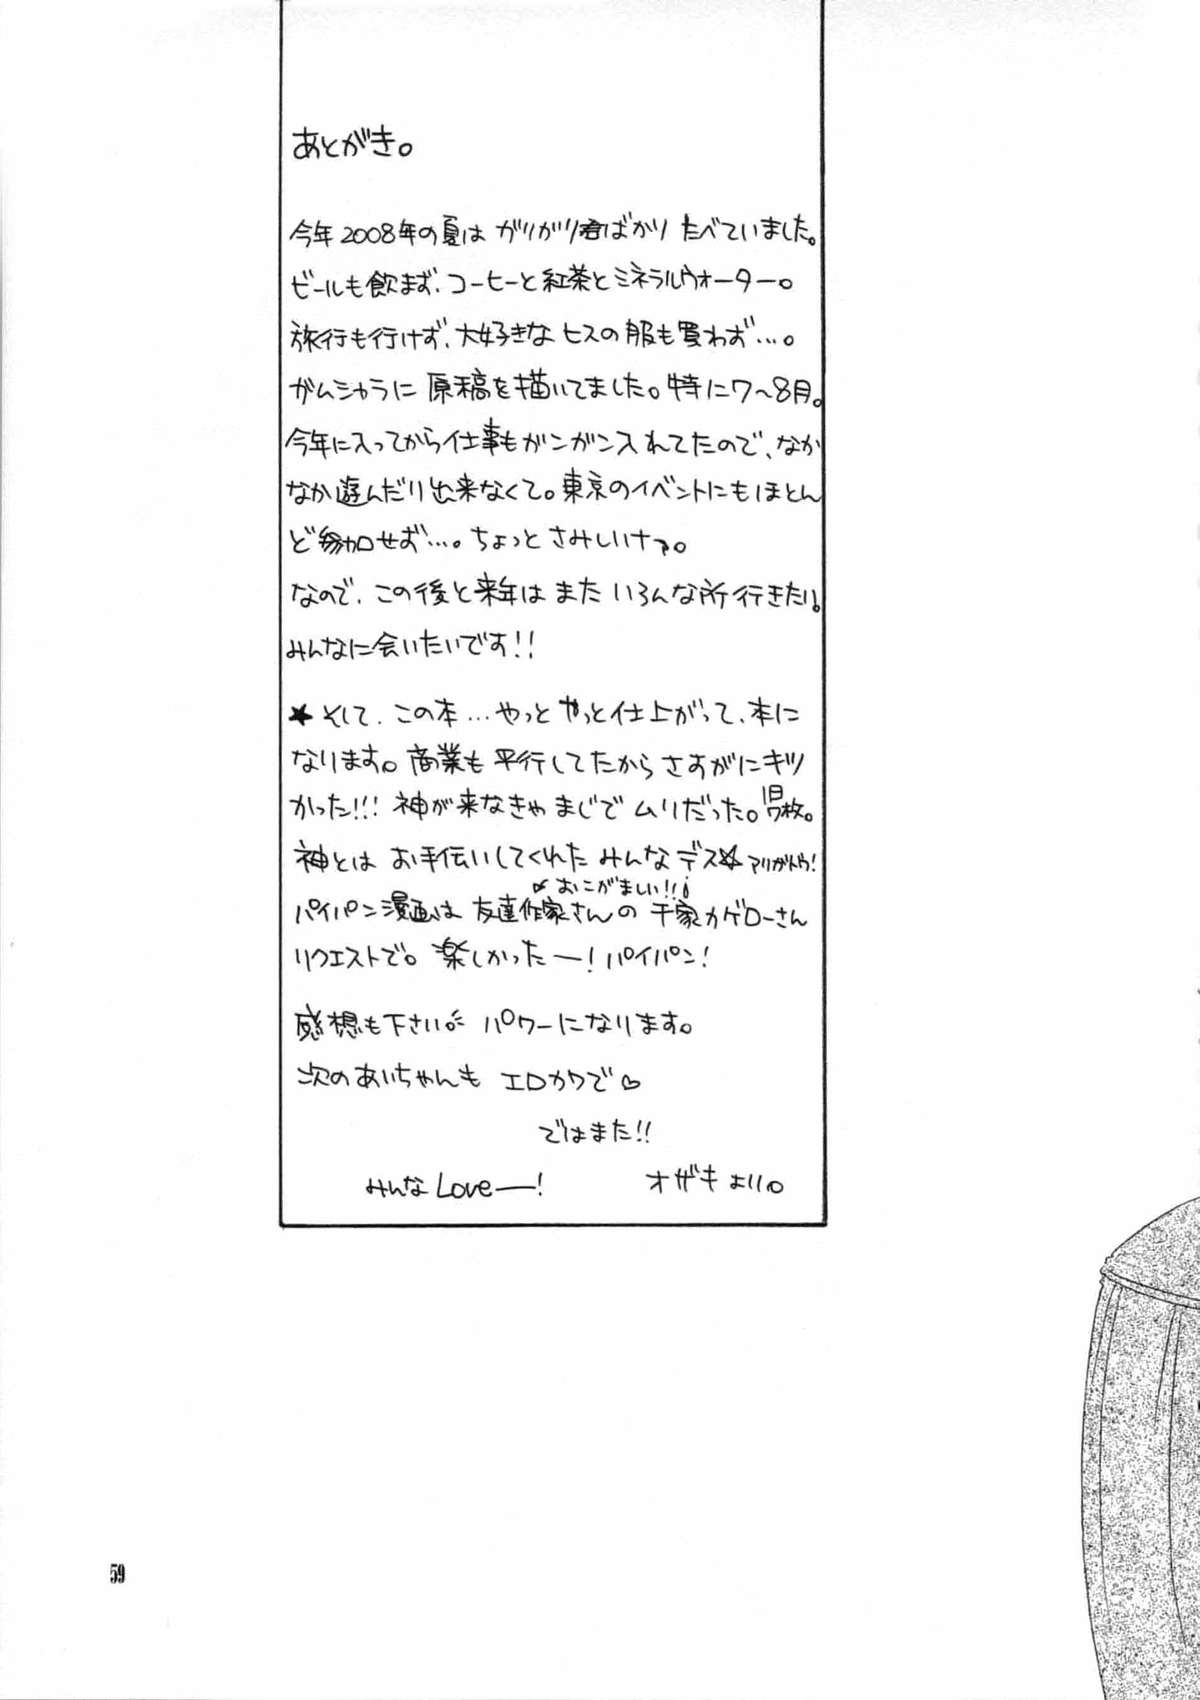 あとがき。
今年2008年の夏は ガリガリ君ばかり たべていました。
ビールも飲まず、コーヒーと紅茶とミネラルウォーター。
旅行も行けず、大好きな ヒスの服も買わず…。
ガムシャラに 原稿を描いてました。特に7〜8月。
今年に入ってから仕事もガンガン入れてたので、なか
なか遊んだり出来なくて。東京のイベントにもほとん
ど参加せず…。ちょっと さみしいナァ。
なので、この後と来年は また いろんな所行きたい。
みんなに会いたいです!!
★そして、この本…やっと やっと仕上がって、本に
なります。商業も 平行してたから さすがにキツ
かった!!! 神が来なきゃ まじで ムリだった。1日7枚。
神とは お手伝いしてくれた みんなデス☆ アリガトウ!
おこがましい!!
パイパン漫画は 友達作家さんの 千家カゲローさん
リクエストで。楽しかったー! パイパン!
感想も下さい。パワーになります。
次のあいちゃんも エロカワで♡
ではまた!!
みんなLoveー! オザキより。
59